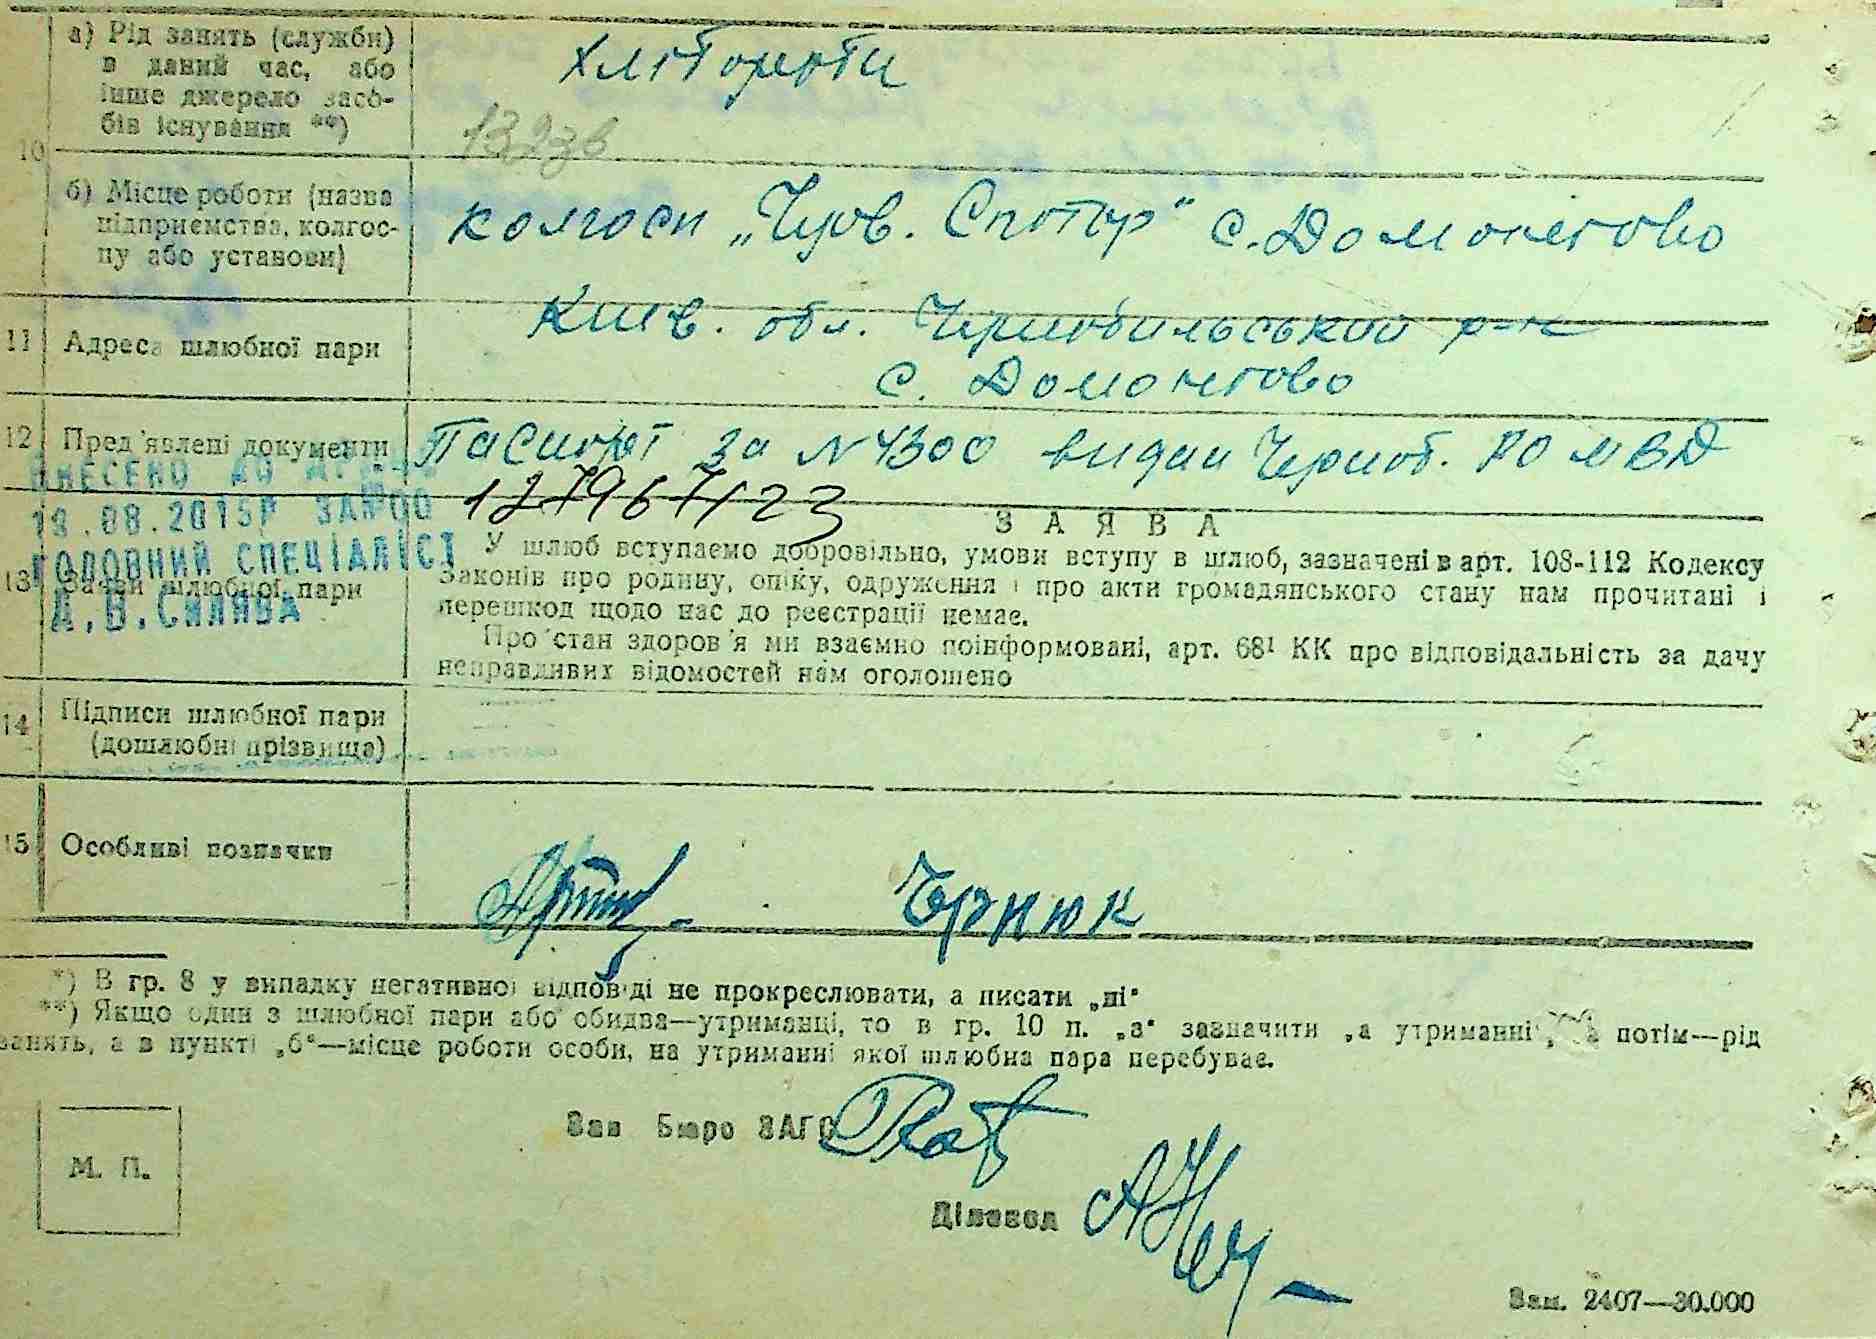 а) Рід занять (служби)
в даний час, або
інше джерело засо-
бів існування **)
Хлібороби
10
1323в
б) Місце роботи (назва
підприємства, колгос-
пу або установи)
колгосп „Черв. " с. Домонтово
Київ. обл. Чернобильський р-н
11 Адреса шлюбної пари
с. Домонтово
12 Пред'явлені документи
Паспорт за N 4300 видан Черноб. РО МВД
ВНЕСЕНО ДО
127967/23
18.08.2015Р ЗА №00
ЗАЯВА
ГОЛОВНИЙ СПЕЦІАЛІСТ
У шлюб вступаємо добровільно, умови вступу в шлюб, зазначені в арт. 108-112 Кодексу
13 Заяви шлюбної пари
Законів про родину, опіку, одруження і про акти громадянського стану нам прочитані і
перешкод щодо нас до реєстрації немає.
Про стан здоров'я ми взаємно поінформовані, арт. 68¹ КК про відповідальність за дачу
неправдивих відомостей нам оголошено
14 Підписи шлюбної пари
(дошлюбні прізвища)
15 Особливі позначки
Чернюк
*) В гр. 8 у випадку негативної відповіді не прокреслювати, а писати „ні"
**) Якщо один з шлюбної пари або обидва—утриманці, то в гр. 10 п. „а" зазначити „а утриманні", а потім—рід
занять, а в пункті „б"—місце роботи особи, на утриманні якої шлюбна пара перебуває.
Зав Бюро ЗАГС
М. П.
Діловод
Зам. 2407—30.000